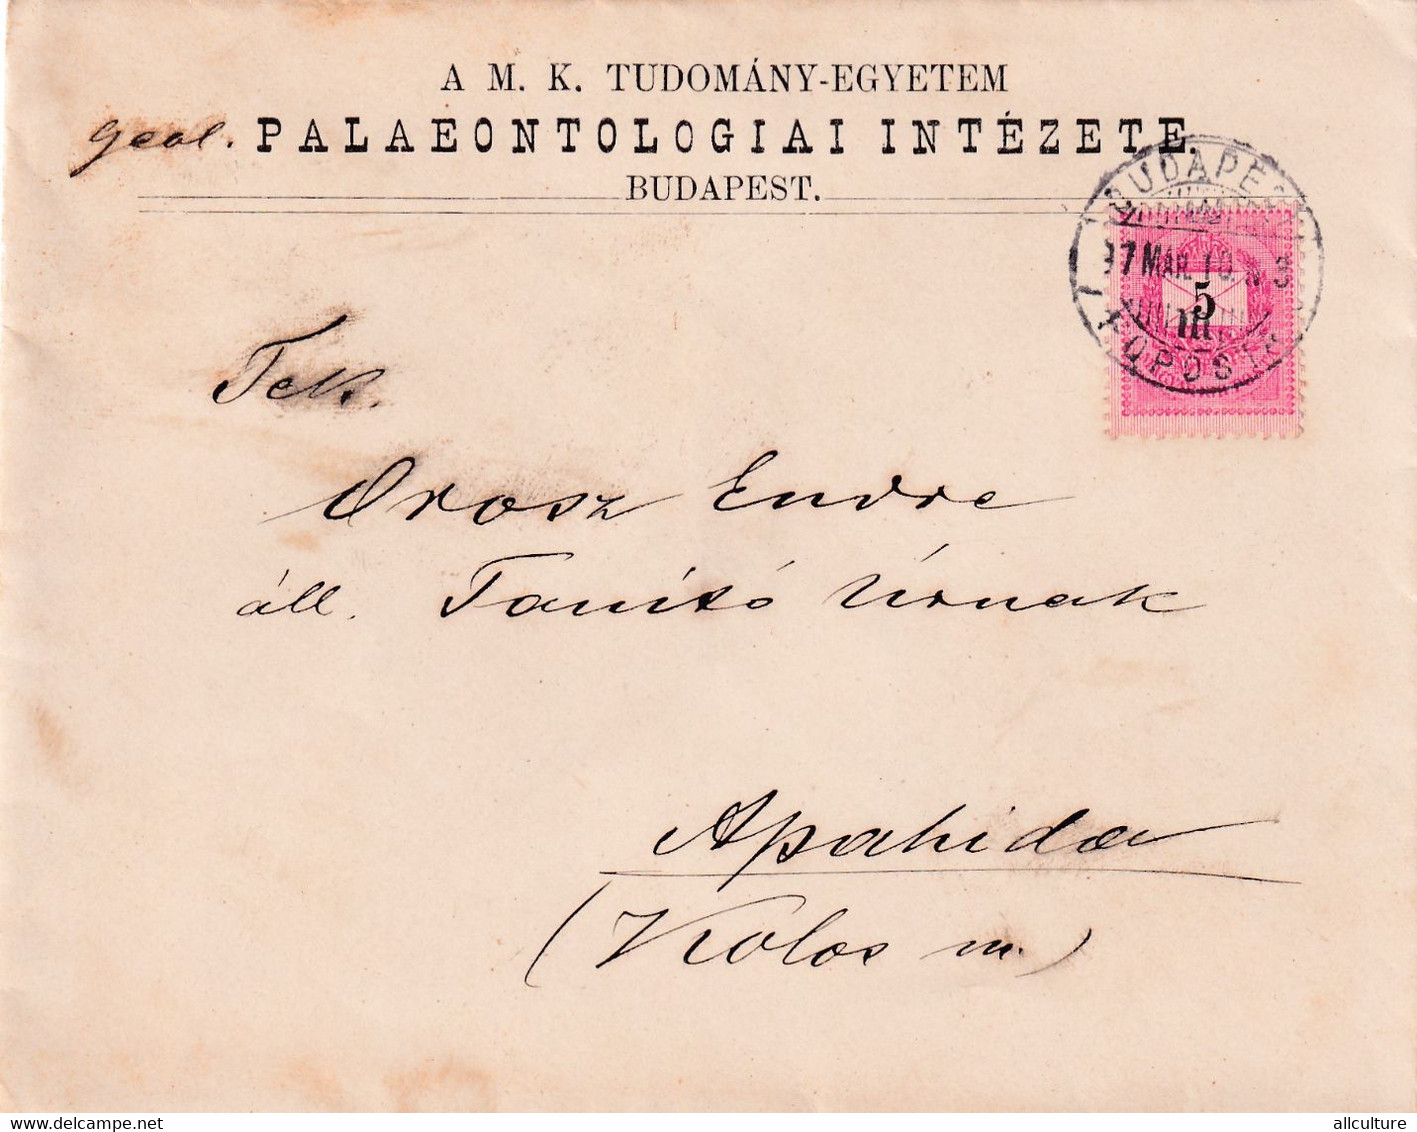 A M. K. TUDOMÁNY-EGYETEM
geol. PALAEONTOLOGIAI INTÉZETE.
BUDAPEST.
BUDAPEST
97 MAR. 10. N 3
FŐPOSTA
5
kr.
Tek.
Orosz Endre
áll. Tanító Úrnak
Apahida
(Kolos m.)
delcampe.net
allculture